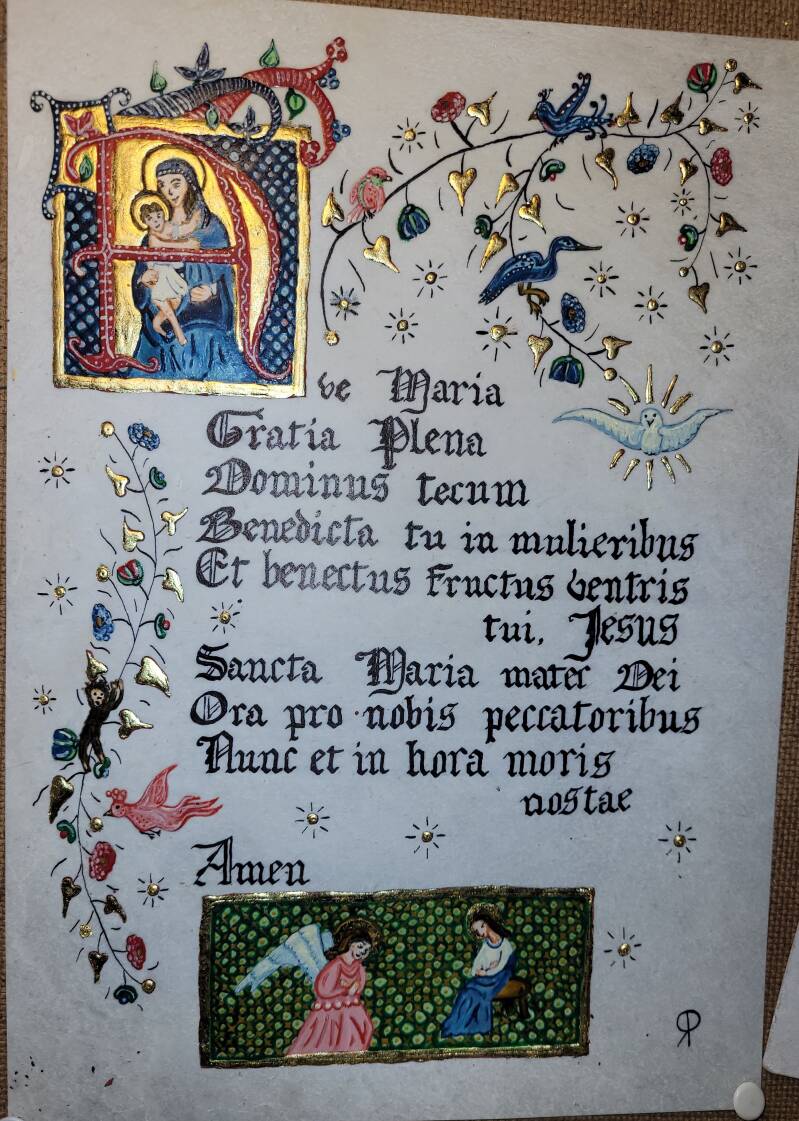 Ave Maria
Gratia Plena
Dominus tecum
Benedicta tu in mulieribus
Et benectus fructus ventris
tui, Jesus
Sancta Maria mater Dei
Ora pro nobis peccatoribus
Nunc et in hora moris
nostae
Amen